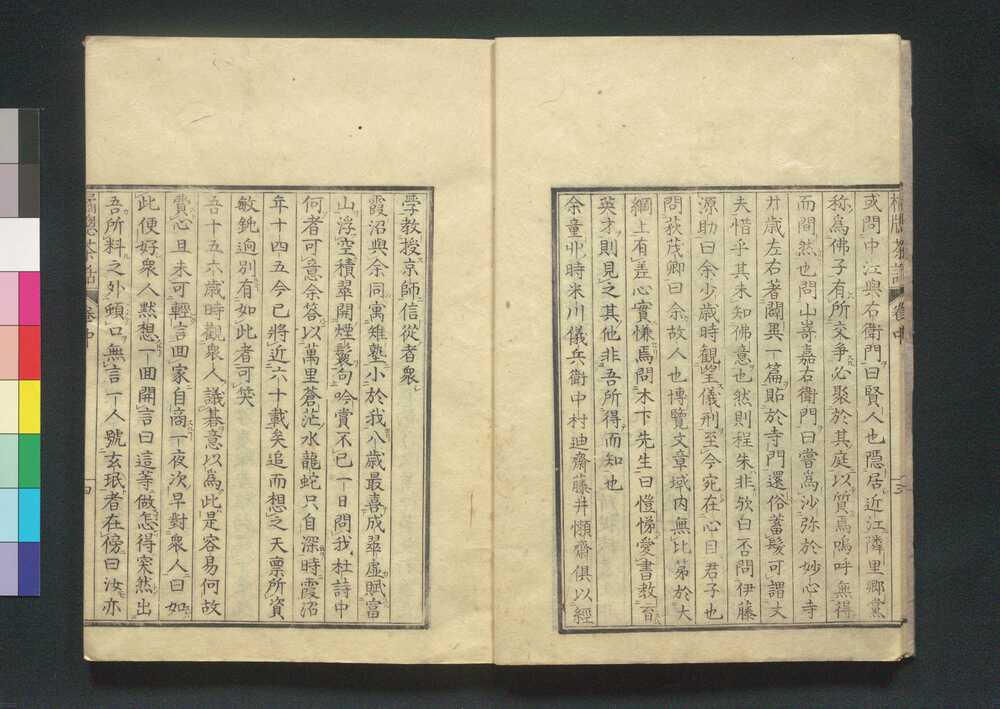 或問中江與右衛門曰賢人也隱居近江隣里鄉黨
称為佛子有所交爭必聚於其庭以質焉嗚呼無得
而間然也問山嵜嘉右衛門曰嘗為沙弥於妙心寺
廾歲左右著闢異一篇貼於寺門還俗蓄髮可謂丈
夫惜乎其未知佛意也然則程朱非欤白否問伊藤
源助曰余少歲時観望儀刑至今宛在心目君子也
問荻茂卿曰余故人也博覽文章域内無比第於大
綱上有差心實慊焉問木下先生曰愷悌愛書教育
英才則見之其他非吾所得而知也
余童丱時米川儀兵衛中村迪齋藤井懶齋俱以經
學教授京師信從者衆
霞沼與余同寓雉塾小於我八歲最喜成翠虛賦富
山浮空積翠開煙鬟句吟賞不已一日問我杜詩中
何者可意余答以萬里蒼茫水龍蛇只自深時霞沼
年十四五今已將近六十載矣追而想之天禀所資
敏鈍逈別有如此者可笑
吾十五六歲時觀衆人議碁意以為此是容易何故
費心且未可輕言回家自商一夜次早對衆人曰如
此便好衆人默想一回開言曰這等做怎得突然出
吾所料之外頓口無言一人號玄珉者在傍曰汝亦
橘牎茶話 卷中
四